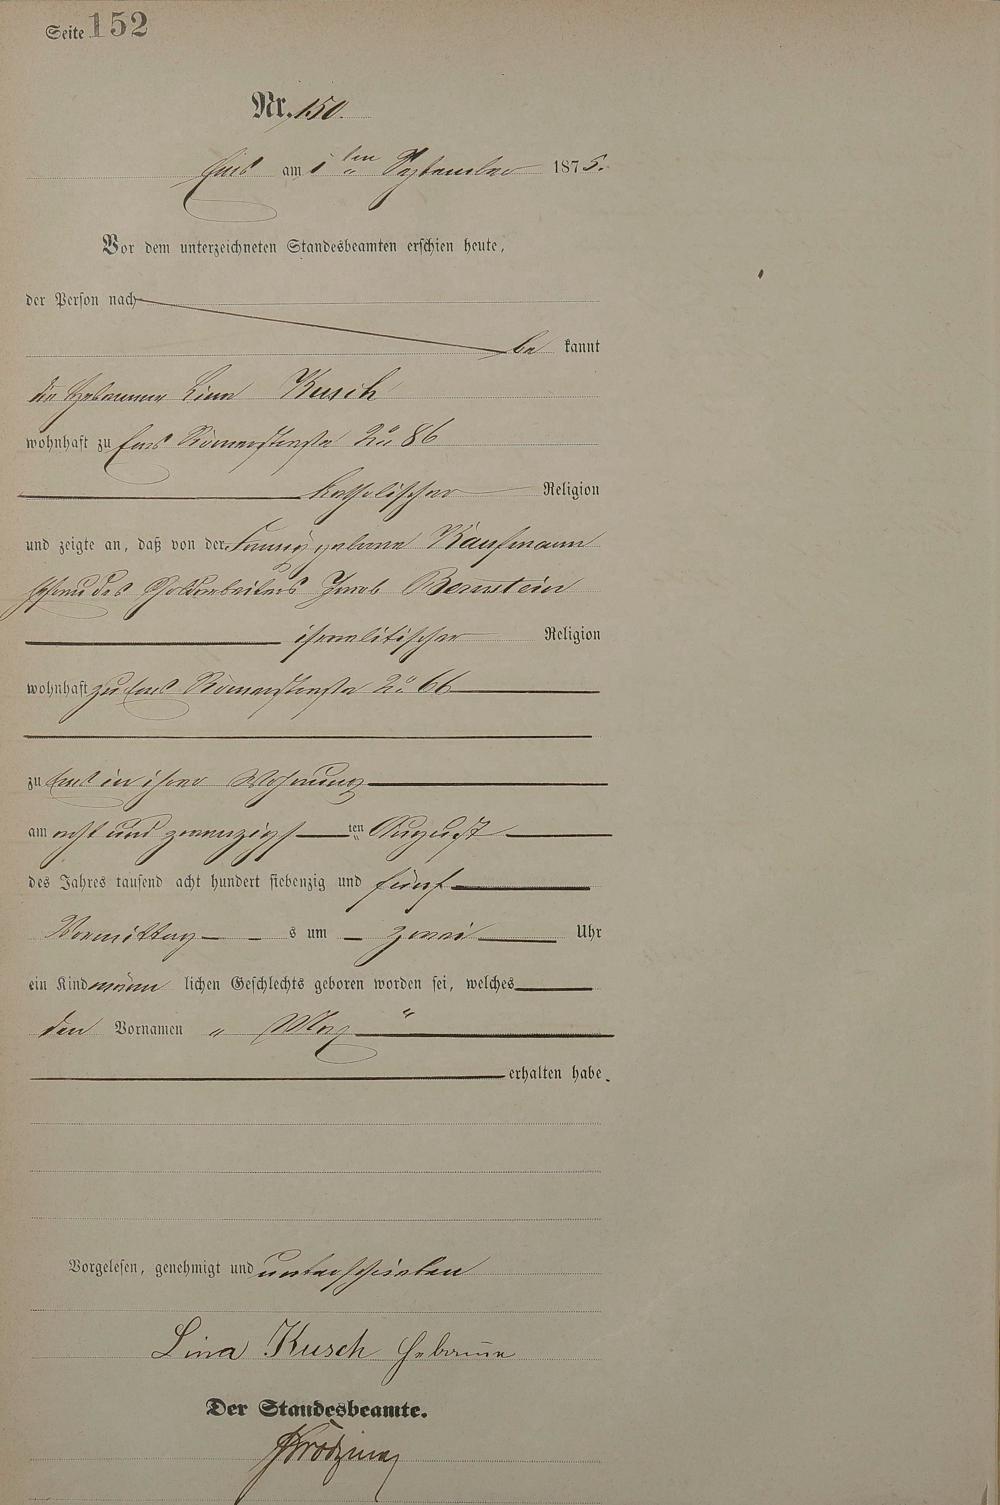 Seite 152
Nr. 150.
Ems am 1 ten September 1875.
Vor dem unterzeichneten Standesbeamten erschien heute,
der Person nach
be kannt
die Hebamme Lina Kusch
wohnhaft zu Ems Römerstraße No 86
katholischer Religion
und zeigte an, daß von der Fanny geborne Kaufmann
Ehefrau des Goldarbeiters Jacob Bernstein
israelitischer Religion
wohnhaft zu Ems Römerstraße No 66
zu Ems in ihrer Wohnung
am acht und zwanzigst ten August
des Jahres tausend acht hundert siebenzig und fünf
Vormittag s um zwei Uhr
ein Kind männ lichen Geschlechts geboren worden sei, welches
den Vornamen „ Max “
erhalten habe.
Vorgelesen, genehmigt und unterschrieben
Lina Kusch Hebamme
Der Standesbeamte.